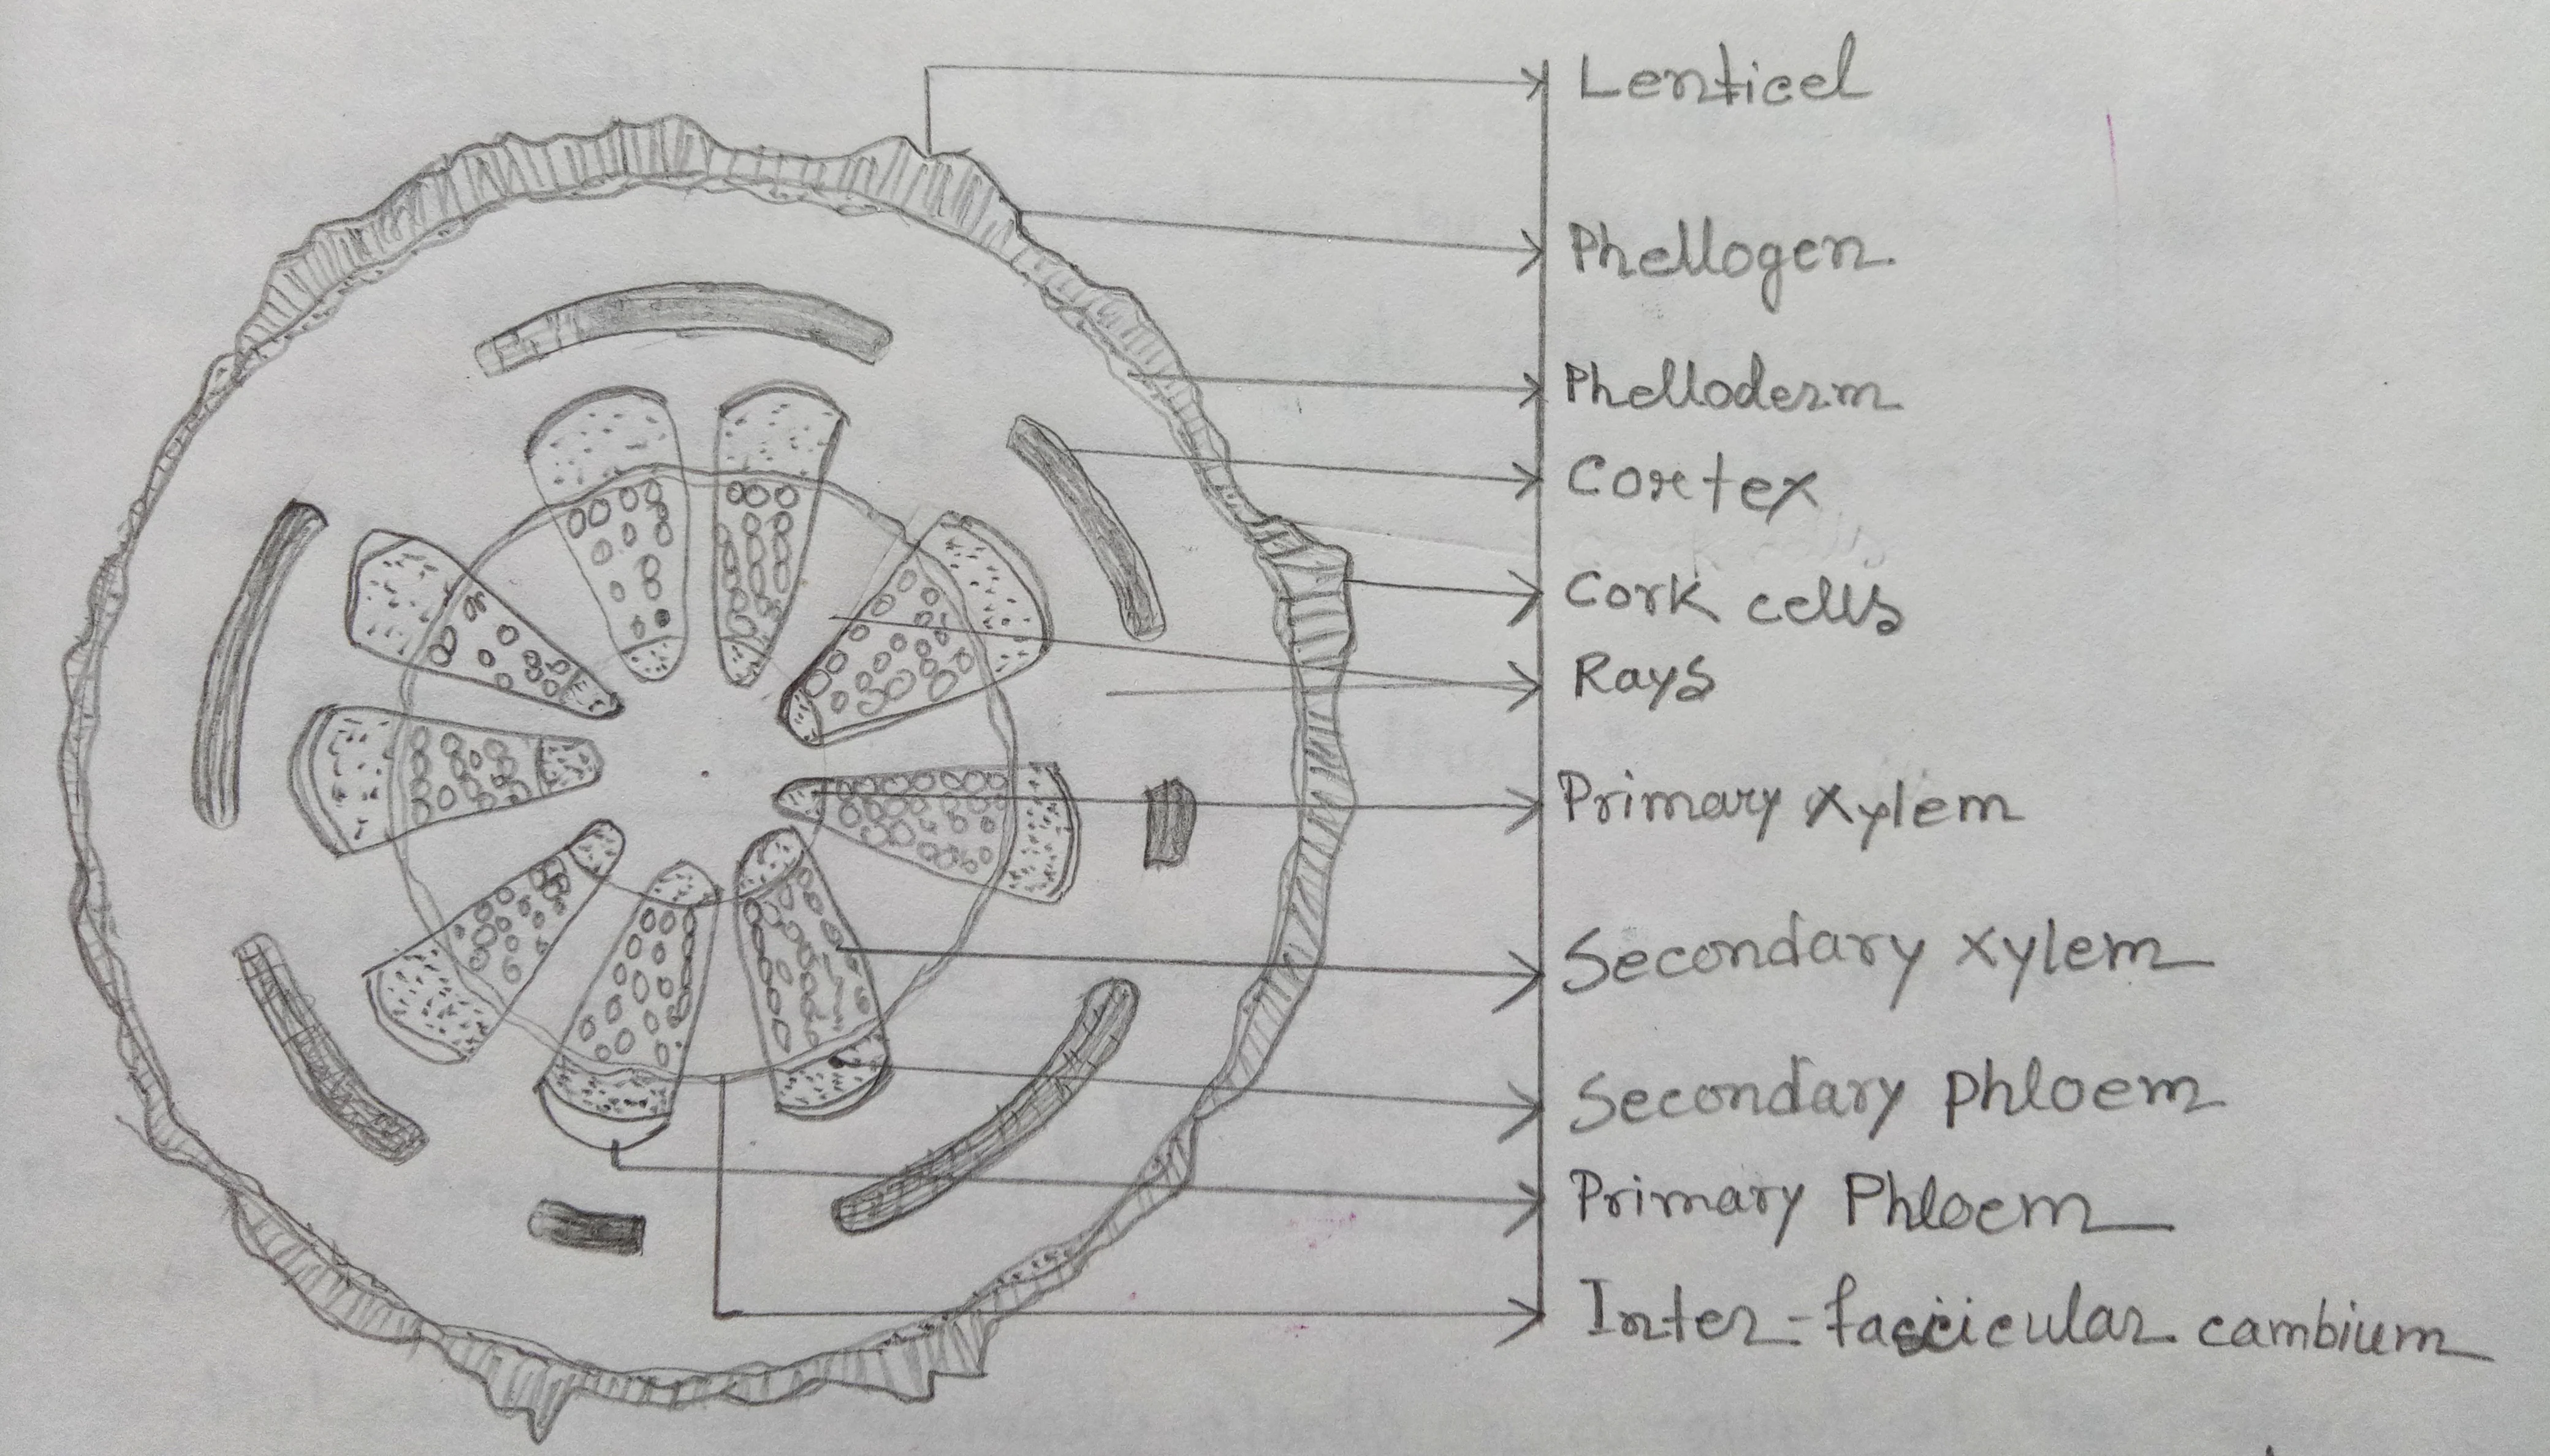 Lenticel
Phellogen
Phelloderm
Cortex
Cork cells
Rays
Primary Xylem
Secondary Xylem
Secondary Phloem
Primary Phloem
Inter-fascicular cambium